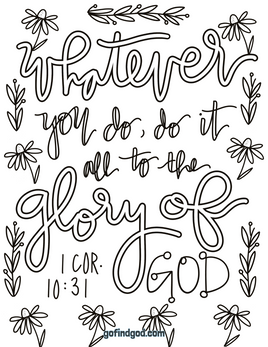 whatever
you do, do it
all to the
glory of
GOD
1 COR.
10:31
gofindgod.com